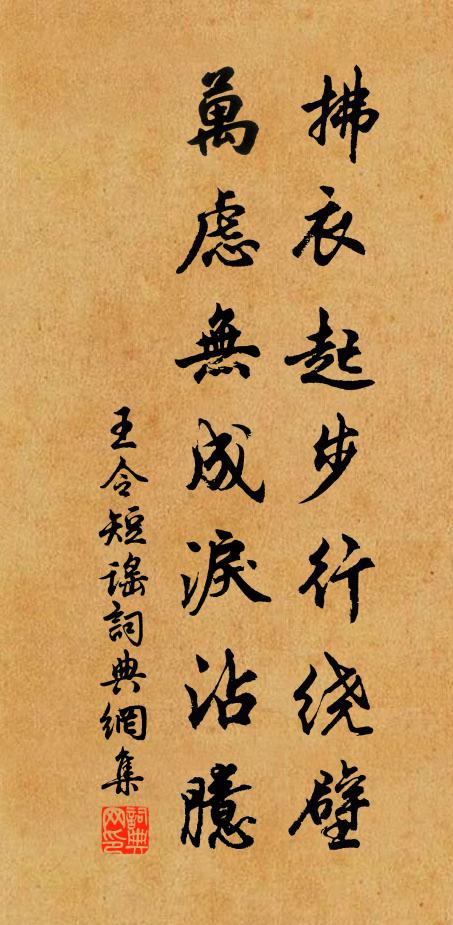 拂衣起步行绕壁
萬慮無成淚沾臆
王令短謠詞典網集
詞典网印